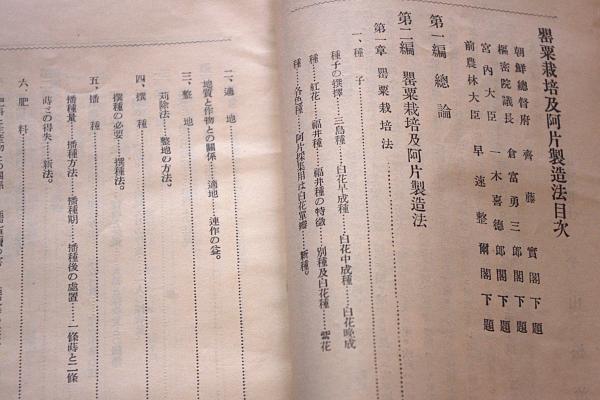 罌粟栽培及阿片製造法目次
朝鮮總督府 齊藤實閣下題
樞密院議長 倉富勇三郎閣下題
宮內大臣 一木喜德郎閣下題
前農林大臣 早速整爾閣下題
第一編 總論
第二編 罌粟栽培及阿片製造法
第一章 罌粟栽培法
一、種子
種子の撰擇……三島種……白花早成種……白花中成種……白花晚成
種……紅花……福井種……福井種の特徵……別種及白花種……紫花
種……各色種……阿片採集用は白花單瓣……新種。
二、適地
地質と作物との關係……適地……連作の益。
三、整地
苅除法……整地の方法。
四、撰種
撰種の必要……撰種法。
五、播種
播種量……播種方法……播種期……播種後の處置……一條蒔と二條
蒔との得失……新法。
六、肥料